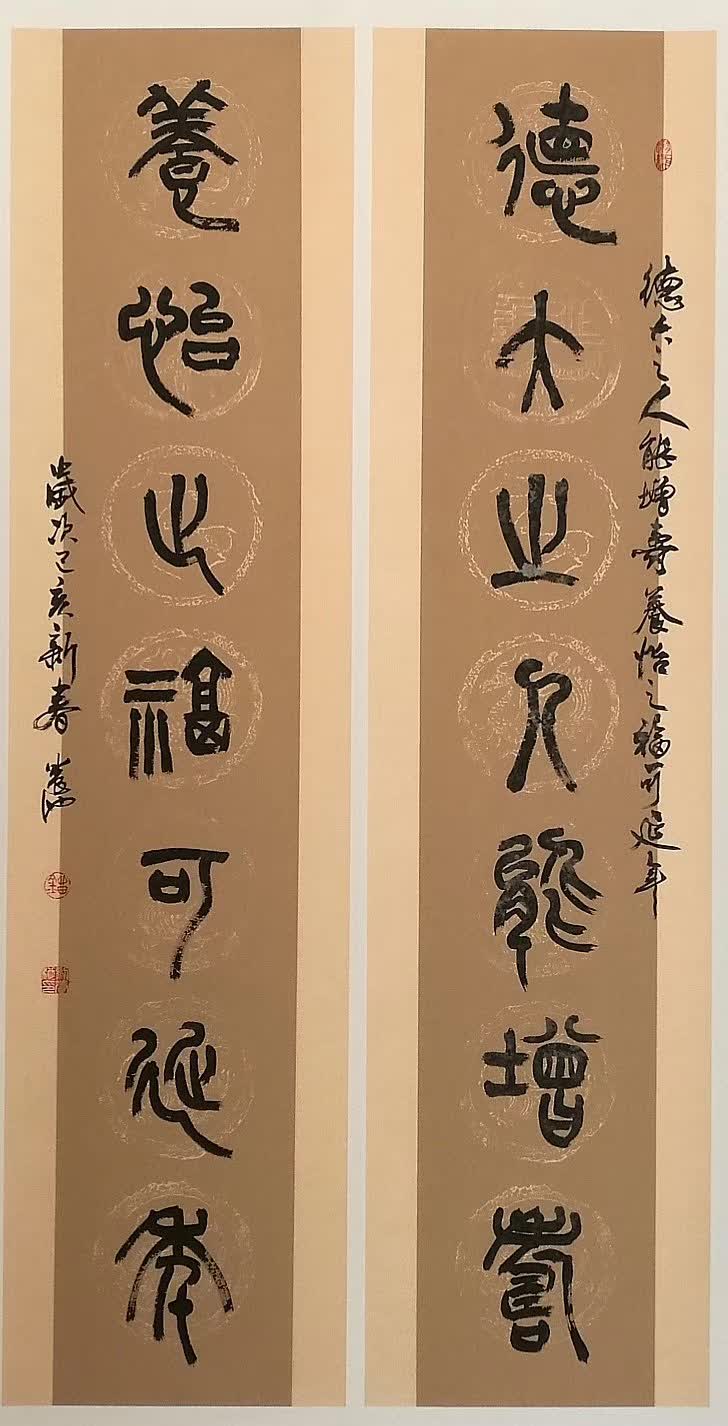 德大之人能增壽
德大之人能增壽養怡之福可延年
養怡之福可延年
歲次己亥新春